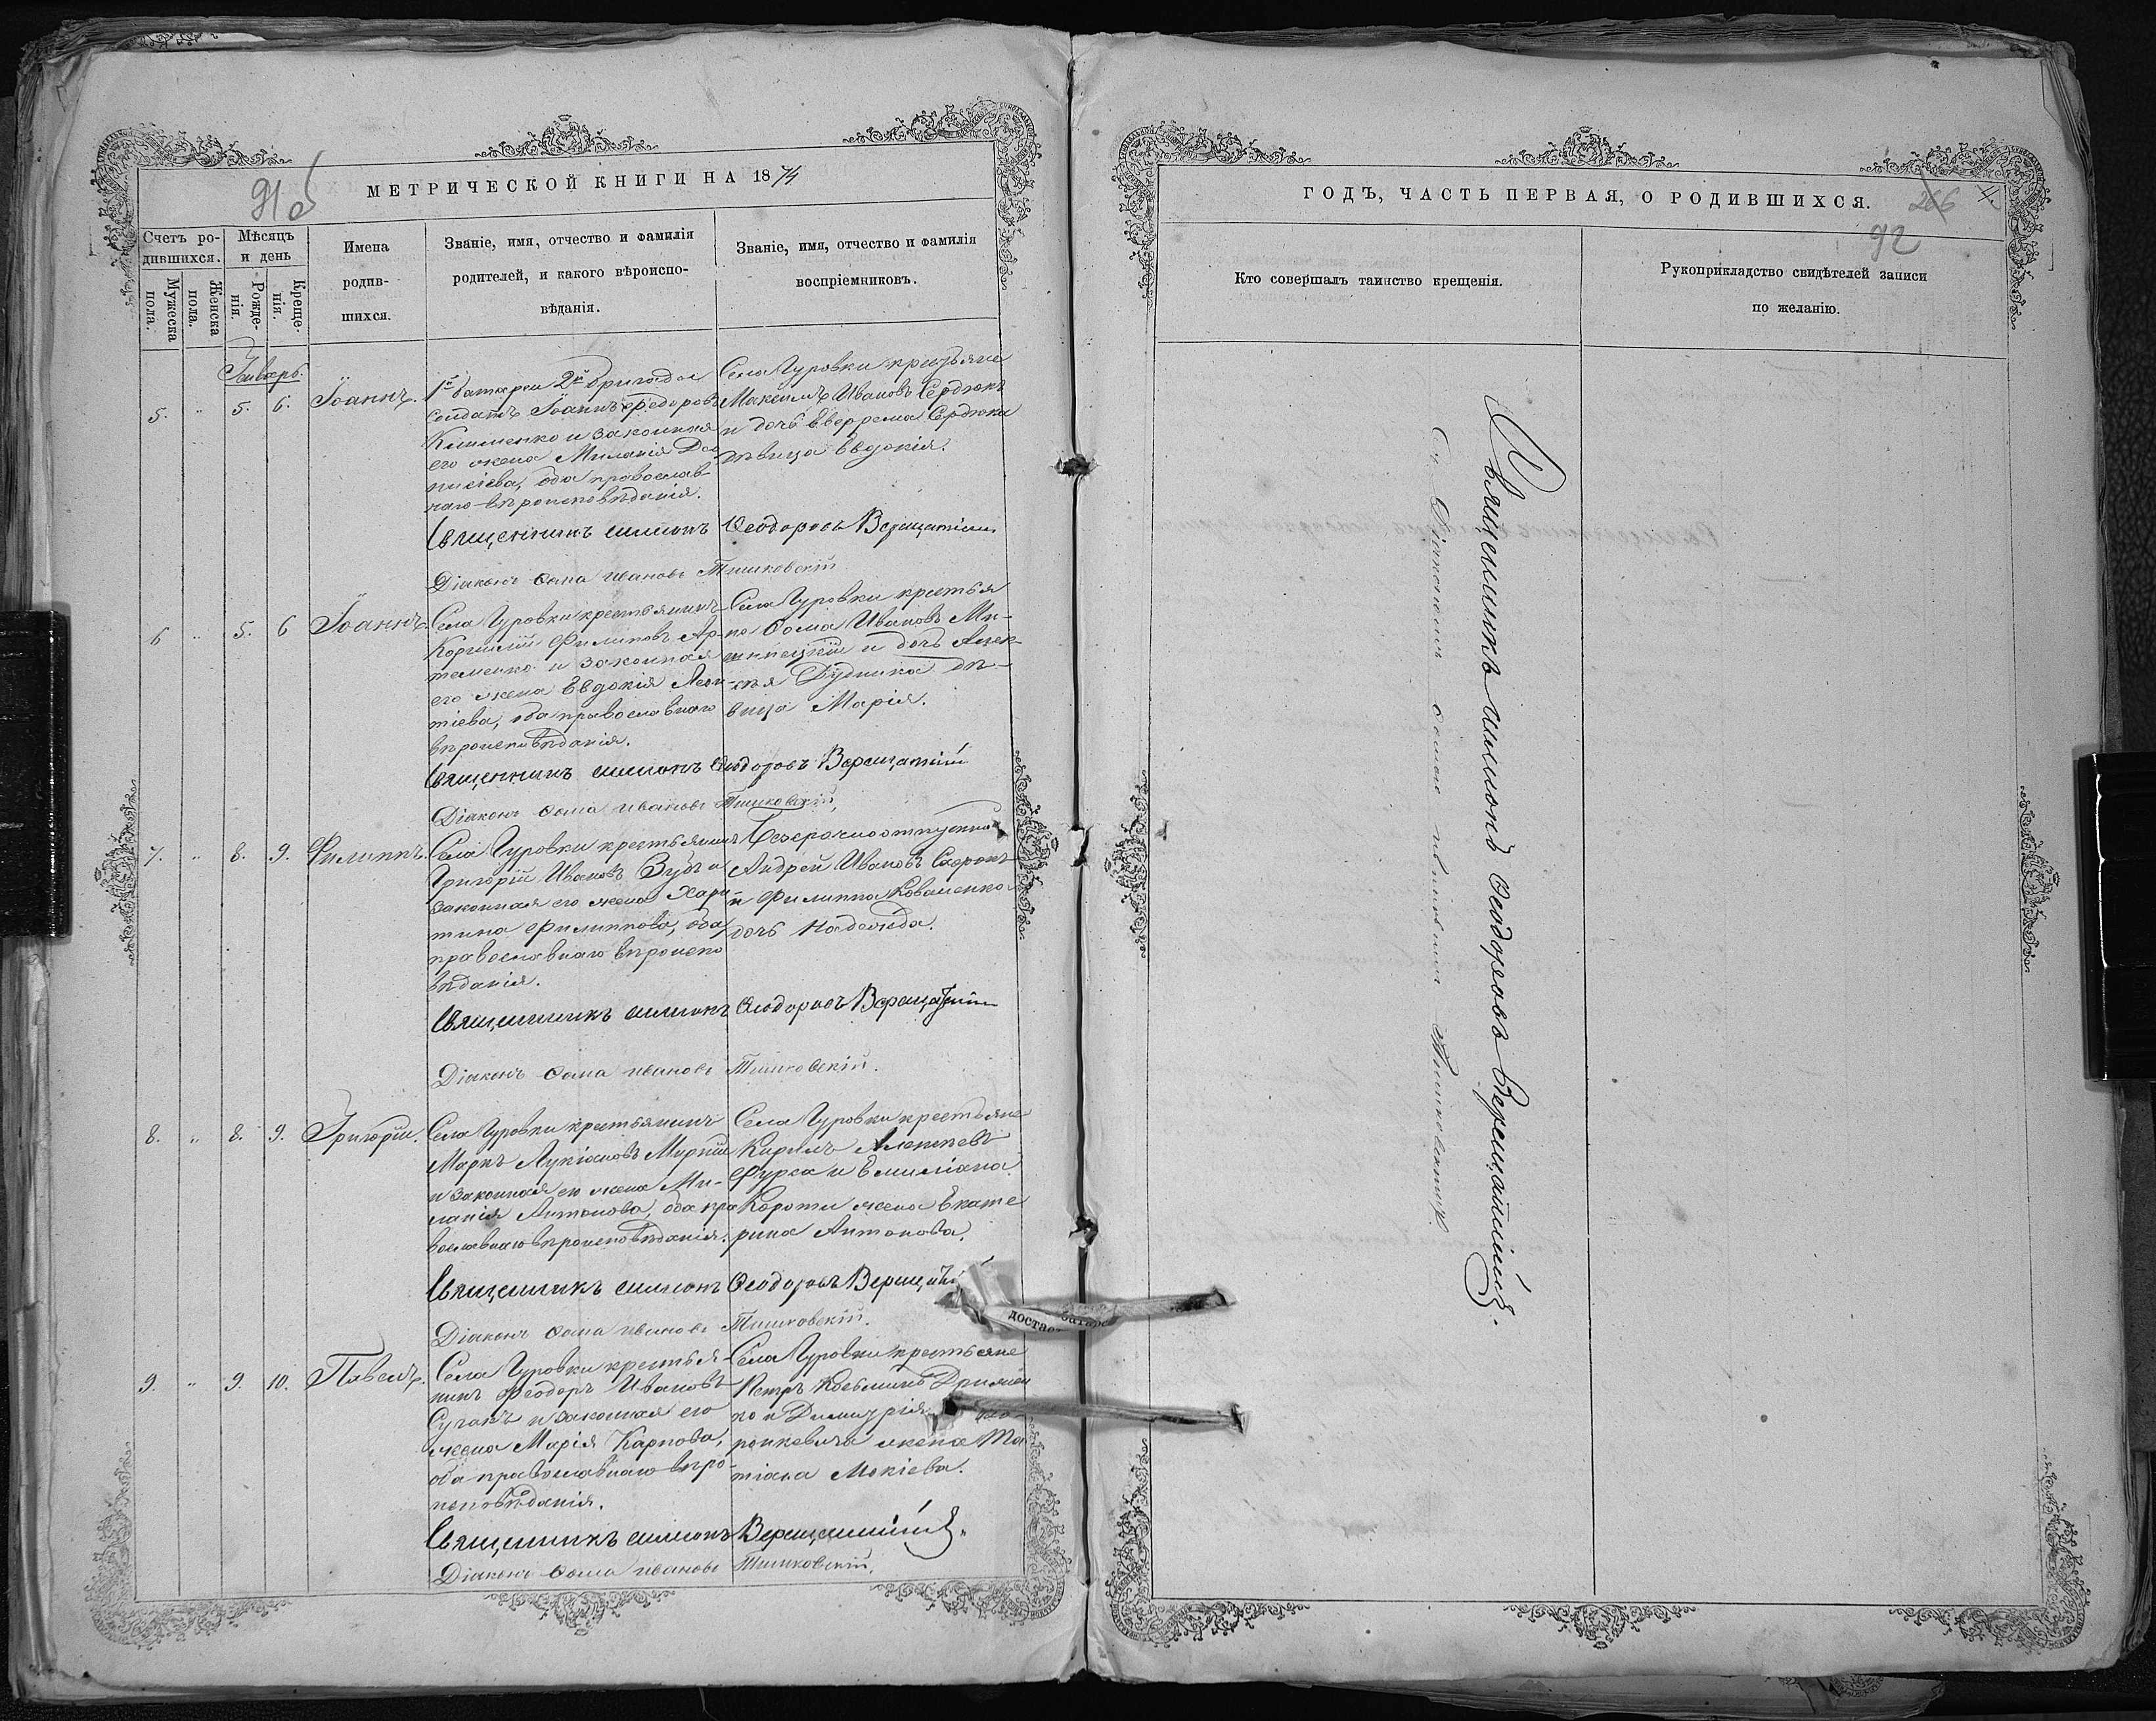 91 об
МЕТРИЧЕСКОЙ КНИГИ НА 1874
Счетъ ро-
дившихся.
Мужеска
пола.
Женска
пола.
Мѣсяцъ
и день
Рожде-
нія.
Креще-
нія.
Имена
родив-
шихся.
Званіе, имя, отчество и фамилія
родителей, и какого вѣроиспо-
вѣданія.
Званіе, имя, отчество и фамилія
воспріемниковъ.
Январь.
5. " 5. 6. Іоаннъ.
1й батареи 2й бригады
солдатъ Іоаннъ Федоровъ
Клименко и законная
его жена Миланія Діо
нисіева, оба православ-
наго вѣроисповѣданія.
Села Гуровки крестьяне
Максимъ Ивановъ Сердюкъ
и дочь Евфрема Сердюка
дѣвица Евдокія.
Священникъ Симеонъ Ѳеодоровъ Верещатскій
Діаконъ Ѳома Ивановъ Тишковскій
6 " 5. 6 Іоаннъ.
Села Гуровки крестьянинъ
Корнилій Филиповъ Ар-
теменко и законная
его жена Евдокія Леон-
тіева, оба православнаго
вѣроисповѣданія.
Села Гуровки крестья
не Ѳома Ивановъ
и дочь Алек-
сѣя Дудника дѣ-
вица Марія.
Священникъ Симеонъ Ѳеодоровъ Верещатскій
Діаконъ Ѳома Ивановъ Тишковскій,
7. " 8. 9. Филиппъ.
Села Гуровки крестьянинъ
Григорій Ивановъ Зубъ и
законная его жена Хари-
тина Филиппова, оба
православнаго вѣроиспо
вѣданія.
Безсрочноотпускной
Андрей Ивановъ Сафронъ
и Филиппа Коваленка
дочь Надежда.
Священникъ Симеонъ Ѳеодоровъ Верещатскій
Діаконъ Ѳома Ивановъ Тишковскій.
8. " 8. 9. Григорій.
Села Гуровки крестьянинъ
Маркъ Лукіановъ Мирній
и законная его жена Ми-
ланія Антонова, оба пра
вославнаго вѣроисповѣданія.
Села Гуровки крестьяне
Кирилъ Алексѣевъ
Фурса и Емиліана
Короти жена Екате
рина Антонова.
Священникъ Симеонъ Ѳеодоровъ Верещатскій
Діаконъ Ѳома Ивановъ Тишковскій.
9. " 9. 10. Павелъ.
Села Гуровки крестья-
нинъ Ѳеодоръ Ивановъ
и законная его
жена Марія Карпова,
оба православнаго вѣро-
исповѣданія.
Села Гуровки крестьяне
Петръ Косьминъ
и Димитрія
жена Та
тіана Мокіева.
Священникъ Симеонъ Верещатскій
Діаконъ Ѳома Ивановъ Тишковскій.
достав
ГОДЪ, ЧАСТЬ ПЕРВАЯ, О РОДИВШИХСЯ.
266
4.
92
Кто совершалъ таинство крещенія.
Рукоприкладство свидѣтелей записи
по желанію.
Священникъ Симеонъ Ѳеодоровъ Верещатскій.
Съ Діакономъ Ѳомою Ивановымъ Тишковскимъ.